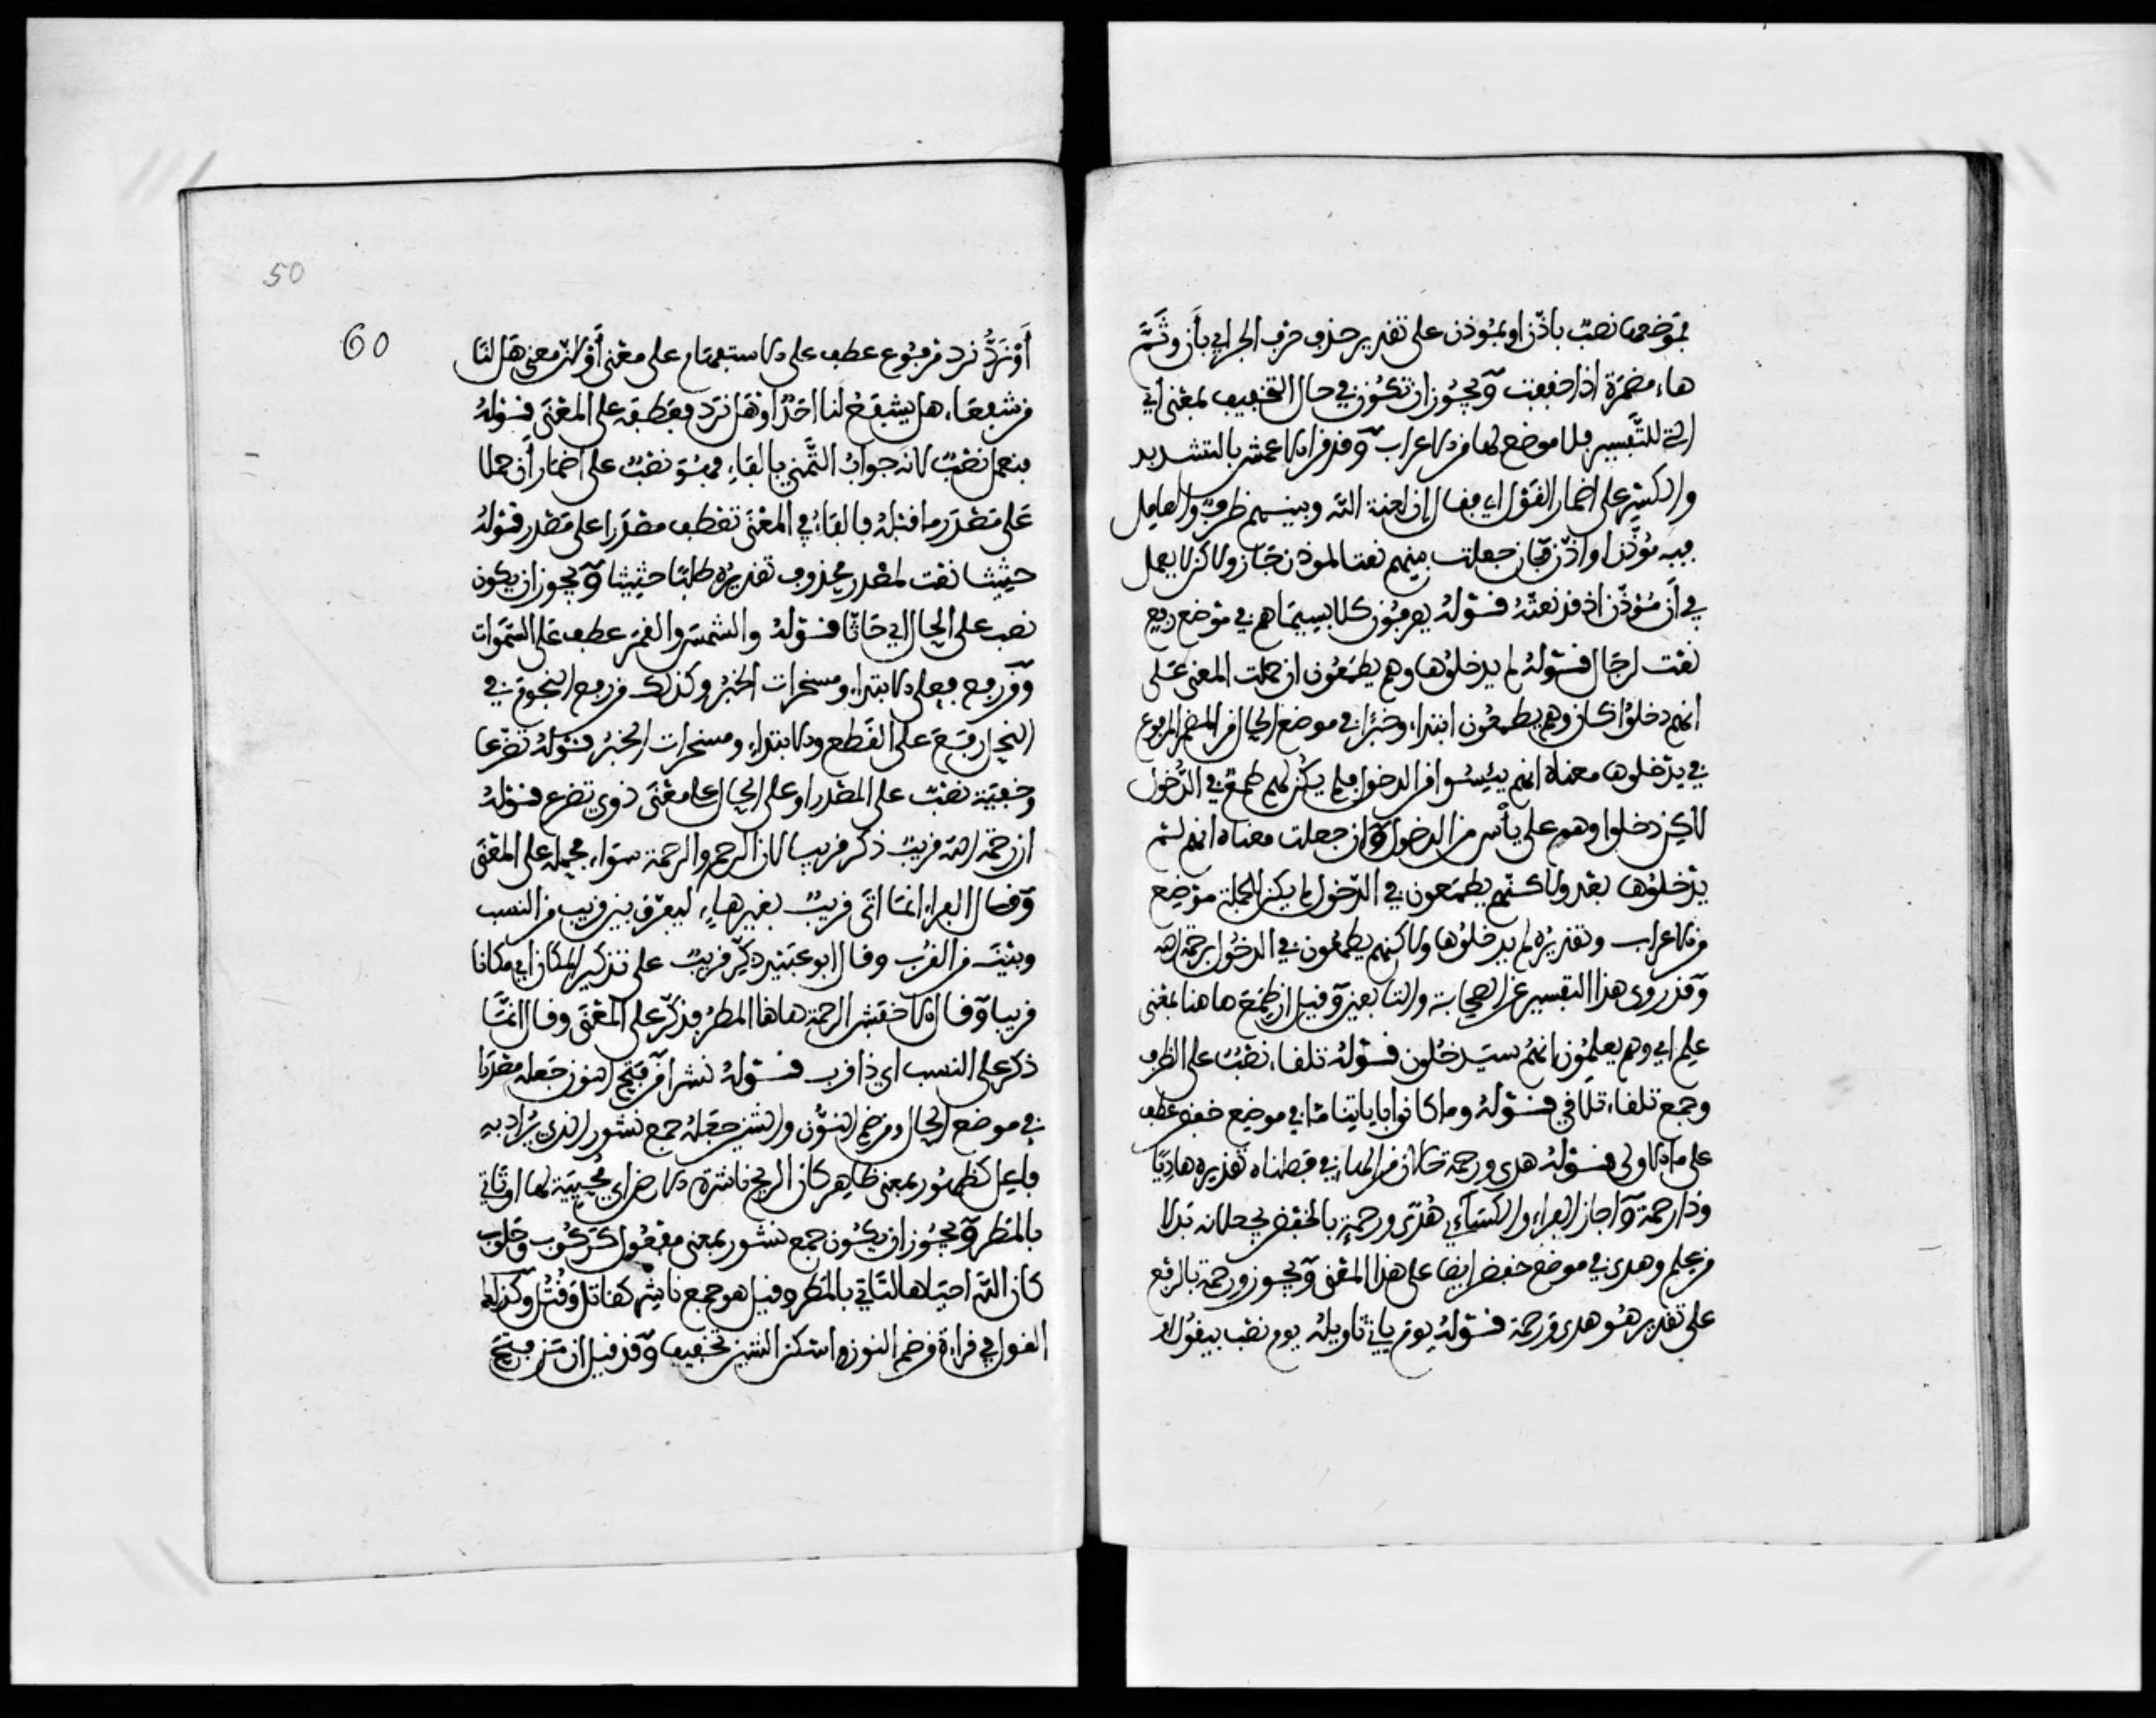 فموضعها نصب باذن او بمؤذن على تقدير حذف حرف الجر اي بأن وثَمَّ
هاء مضمرة اذا خففت ويجوز ان تكون في حال التخفيف بمعنى أي
التي للتفسير فلا موضع لها من الاعراب وقد قرا الاعمش بالتشديد
والكسر على اضمار القول اي فقال إن لعنة الله وبينهم ظرف والعامل
فيه مؤذن او اذن فان جعلت بينهم نعتا لمؤذن جاز ولاكن لا يعمل
في أن مؤذن اذ قد نعته قوله يعرفون كلا بسيماهم في موضع رفع
نعت لرجال قوله لم يدخلوها وهم يطمعون ان حملت المعنى على
انهم دخلوا كان وهم يطمعون ابتداء وخبرا في موضع الحال من المضمر المرفوع
في يدخلوها معناه انهم يئسوا من الدخول فلم يكن لهم طمع في الدخول
لاكن دخلوا وهم على يأس من الدخول وان جعلت معناه انهم لم
يدخلوها بعد ولاكنهم يطمعون في الدخول لم يكن للجملة موضع
من الاعراب وتقديره لم يدخلوها ولاكنهم يطمعون في الدخول برحمة الله
وقد روى هذا التفسير عن الصحابة والتابعين وقيل ان طمع هاهنا بمعنى
علم اي وهم يعلمون انهم سيدخلون قوله تلقاء نصب على الظرف
وجمع تلقاء تلاقي قوله وما كانوا باياتنا ما في موضع خفض عطف
على ما الاولى قوله هدى ورحمة حالان من الهاء في فصلناه تقديره هاديا
وذا رحمة واجاز الفراء والكسائي هدى ورحمةٍ بالخفض يجعلانه بدلا
من علم وهدى في موضع خفض ايضا على هذا المعنى ويجوز ورحمة بالرفع
على تقدير هو هدى ورحمة قوله يوم ياتي تاويله يوم نصب بيقول
50
60
أو نردُّ نرد مرفوع عطف على الاستفهام على معنى أو لان معنى هل لنا
من شفعاء هل يشفع لنا احد او هل نرد فعطفه على المعنى قوله
فنعمل نصب لانه جواب التمني بالفاء فهو نصب على اضمار أن حملا
على مصدر ما قبله فالفاء في المعنى تعطف مصدرا على مصدر قوله
حثيثا نعت لمصدر محذوف تقديره طلبا حثيثا ويجوز ان يكون
نصب على الحال اي حاثا قوله والشمس والقمر عطف على السموات
ومن رفع فعلى الابتداء ومسخرات الخبر وكذلك من رفع النجوم في
النحل رفع على القطع والابتداء ومسخرات الخبر قوله تضرعا
وخفية نصب على المصدر او على الحال على معنى ذوي تضرع قوله
ان رحمة الله قريب ذكر قريب لان الرحم والرحمة سواء فحمله على المعنى
وقال الفراء انما اتى قريب بغير هاء ليفرق بين قريب من النسب
وبينه من القرب وقال ابو عبيد ذكر قريب على تذكير المكان اي مكانا
قريبا وقال الاخفش الرحمة هاهنا المطر فذكر على المعنى وقال انما
ذكر على النسب اي ذا قرب قوله نشرا من فتح النون جعله مصدرا
في موضع الحال ومن ضم النون والشين جعله جمع نشور الذي يراد به
فاعل كطهور بمعنى طاهر كان الريح ناشرة الارض اي محيية لها او تاتي
بالمطر ويجوز ان يكون جمع نشور بمعنى مفعول كركوب وحلوب
كان الله احياها لتاتي بالمطر وقيل هو جمع ناشر كقاتل وقتل وكذلك
القول في قراءة من ضم النون واسكن الشين تخفيفا وقد قيل ان من فتح